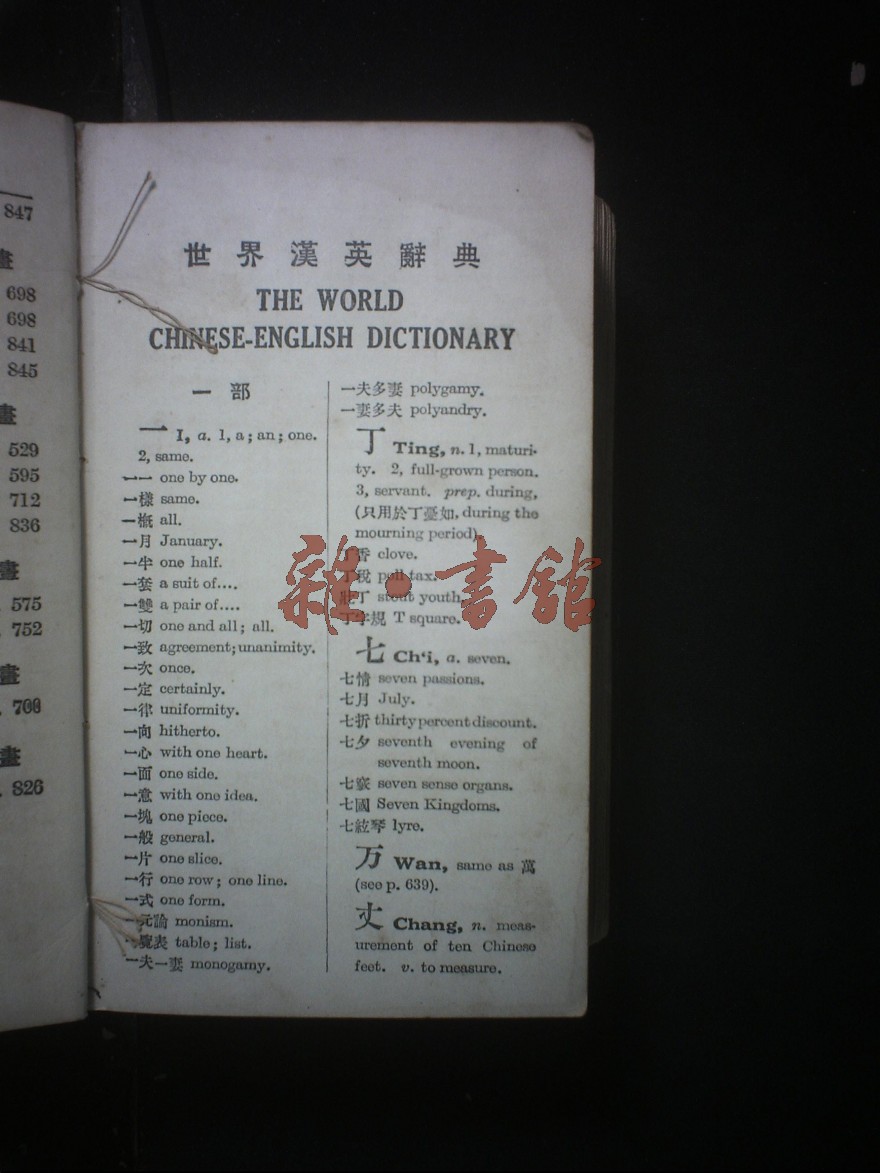 847
畫
698
698
841
845
畫
529
595
712
836
畫
575
752
畫
700
畫
826
世界漢英辭典
THE WORLD
CHINESE-ENGLISH DICTIONARY
一部
一 I, a. 1, a; an; one.
2, same.
一一 one by one.
一樣 same.
一概 all.
一月 January.
一半 one half.
一套 a suit of....
一雙 a pair of....
一切 one and all; all.
一致 agreement; unanimity.
一次 once.
一定 certainly.
一律 uniformity.
一向 hitherto.
一心 with one heart.
一面 one side.
一意 with one idea.
一塊 one piece.
一般 general.
一片 one slice.
一行 one row; one line.
一式 one form.
一元論 monism.
一覽表 table; list.
一夫一妻 monogamy.
一夫多妻 polygamy.
一妻多夫 polyandry.
丁 Ting, n. 1, maturi-
ty. 2, full-grown person.
3, servant. prep. during,
(只用於丁憂如, during the
mourning period).
丁香 clove.
丁稅 poll tax.
壯丁 stout youth.
丁字規 T square.
七 Ch'i, a. seven.
七情 seven passions.
七月 July.
七折 thirty percent discount.
七夕 seventh evening of
seventh moon.
七竅 seven sense organs.
七國 Seven Kingdoms.
七絃琴 lyre.
万 Wan, same as 萬
(see p. 639).
丈 Chang, n. meas-
urement of ten Chinese
feet. v. to measure.
雜·書館